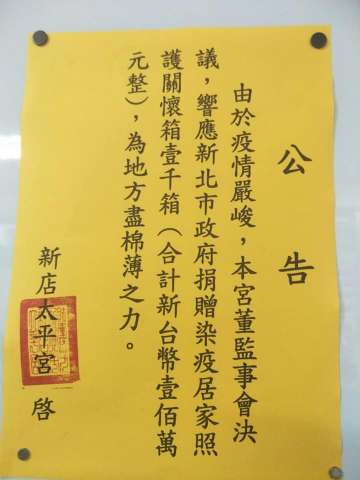 公告
由於疫情嚴峻，本宮董監事會決
議，響應新北市政府捐贈染疫居家照
護關懷箱壹千箱（合計新台幣壹佰萬
元整），為地方盡棉薄之力。
新店太平宮 啓